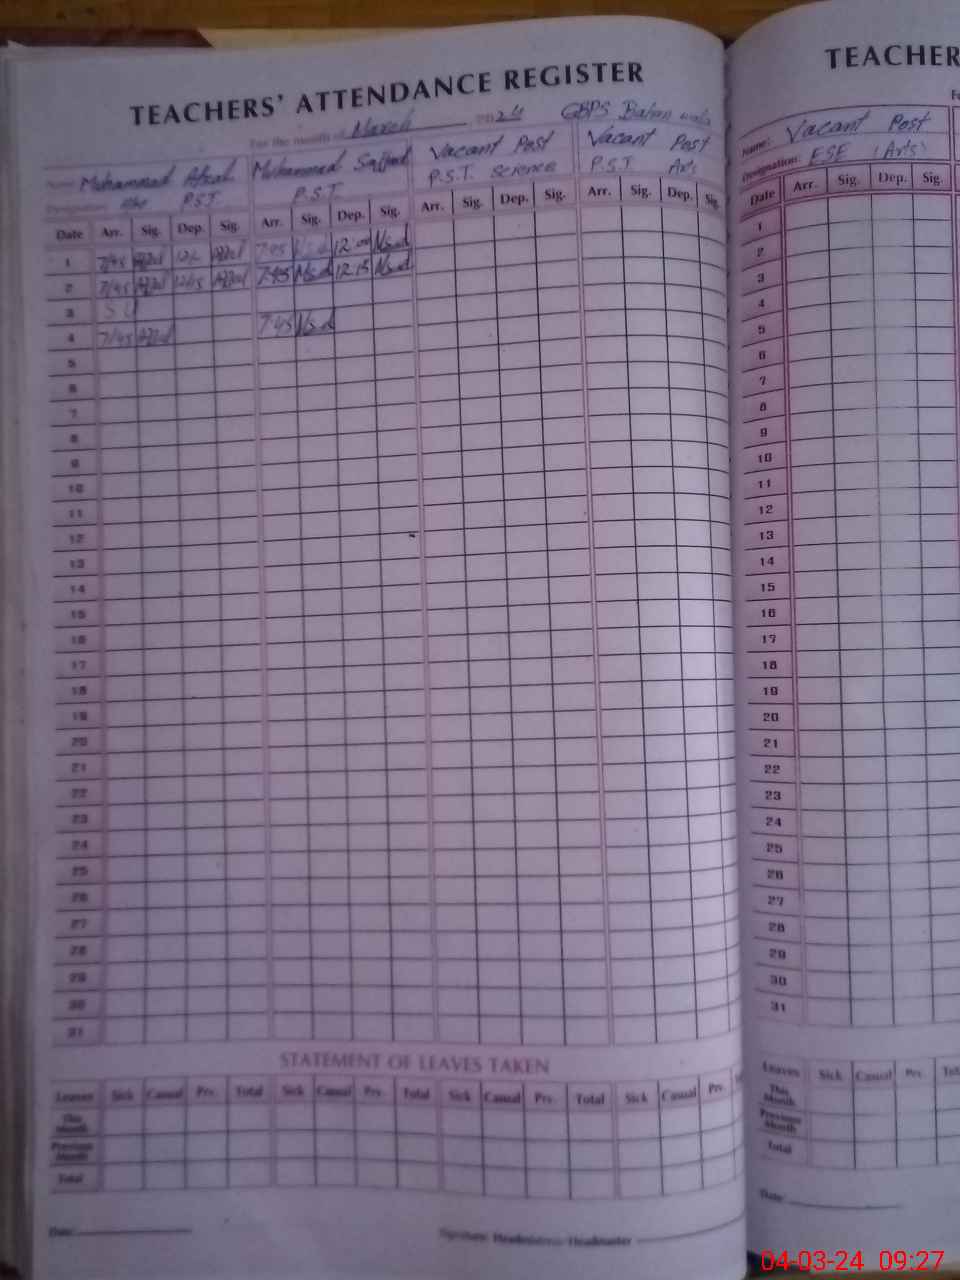 TEACHERS' ATTENDANCE REGISTER
For the month of March 2024 GBPS
Name: Muhammad Afzal Muhammad Sajjad Vacant Post Vacant Post
P.S.T. P.S.T. P.S.T. Science P.S.T. Arts
Date Arr. Sig. Dep. Sig. Arr. Sig. Dep. Sig. Arr. Sig. Dep. Sig. Arr. Sig. Dep. Sig.
1 7/45 Afzal 12/ Afzal 7:45 12:00
2 7/45 Afzal 12/15 Afzal 7:45 12:15
3 S U
4 7/45 Afzal 7:45
5
6
7
8
9
10
11
12
13
14
15
16
17
18
19
20
21
22
23
24
25
26
27
28
29
30
31
STATEMENT OF LEAVES TAKEN
Leaves Sick Casual Prv. Total Sick Casual Prv. Total Sick Casual Prv. Total Sick Casual Prv.
This Month
Previous Month
Total
Date: Signature Headmistress/Headmaster
TEACHER
Name: Vacant Post
Designation: ESE (Arts)
Date Arr. Sig. Dep. Sig.
1
2
3
4
5
6
7
8
9
10
11
12
13
14
15
16
17
18
19
20
21
22
23
24
25
26
27
28
29
30
31
Leaves Sick Casual Prv.
This Month
Previous Month
Total
Date:
04-03-24 09:27